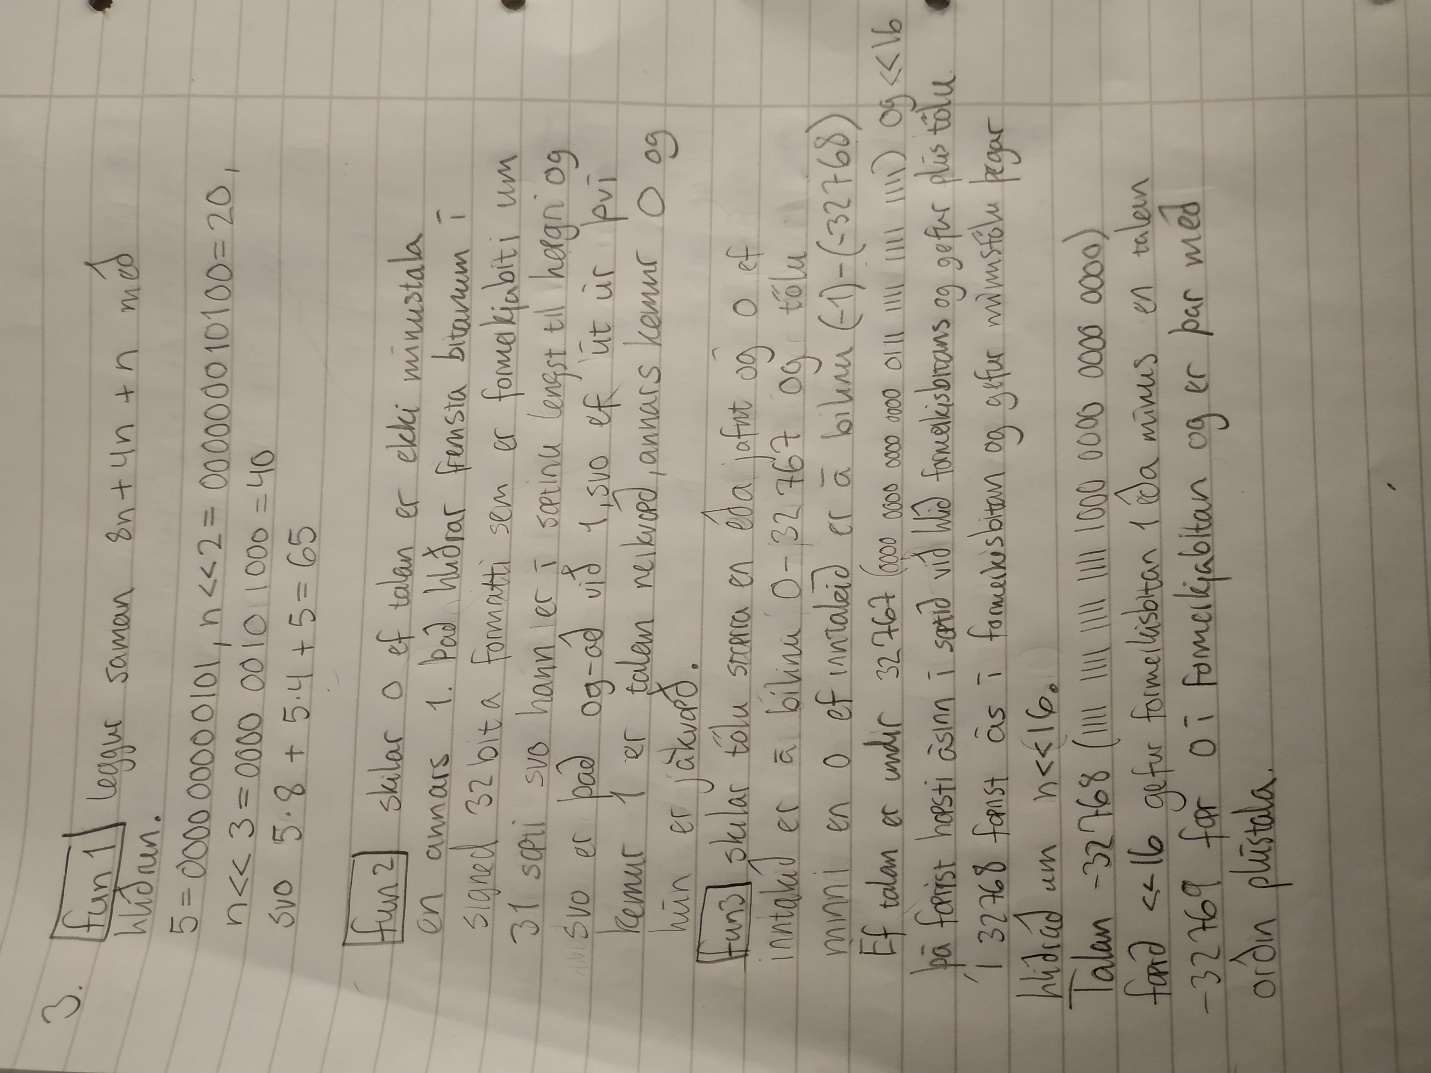 3.
fun1 leggur saman 8n + 4n + n með
hliðrun.
5 = 0000 0000 0101, n<<2 = 000000010100 = 20,
n<< 3 = 0000 0010 1000 = 40
svo 5·8 + 5·4 + 5 = 65
fun2 skilar 0 ef talan er ekki mínustala
en annars 1. Það hliðrar fremsta bitanum í
signed 32 bita formatti sem er formerkjabiti um
31 sæti svo hann er í sætinu lengst til hægri og
svo er það og-að við 1, svo ef út úr því
kemur 1 er talan neikvæð, annars kemur 0 og
hún er jákvæð.
fun3 skilar tölu stærra en eða jafnt og 0 ef
inntakið er á bilinu 0-32767 og tölu
minni en 0 ef inntakið er á bilinu (-1)-(-32768)
Ef talan er undir 32767 (0000 0000 0000 0000 0111 1111 1111 1111) og <<16
þá færist hæsti ásinn í sætið við hlið formerkisbitans og gefur plús tölu.
Í 32768 færist ás í formerkisbitan og gefur mínustölu þegar
hliðrað um n<<16.
Talan -32768 (1111 1111 1111 1111 1000 0000 0000 0000)
færð <<16 gefur formerkisbitan 1 eða mínus en talan
-32769 fær 0 í formerkjabitan og er þar með
orðin plústala.